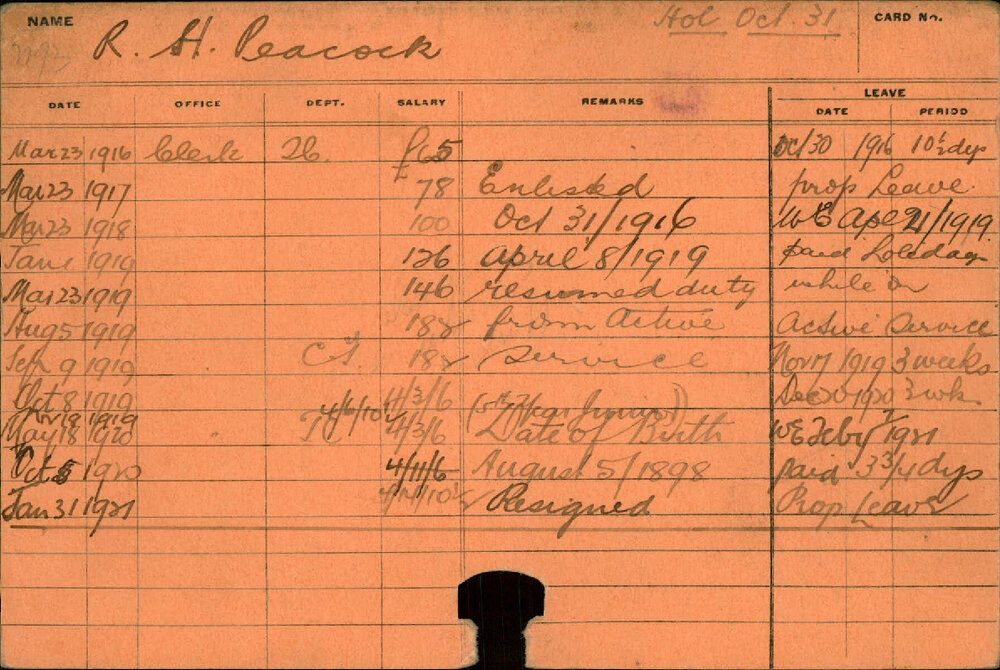 NAME R. H. Peacock Hol Oct. 31 CARD No.
DATE OFFICE DEPT. SALARY REMARKS LEAVE
DATE PERIOD
Mar 23 1916 Clerk 26. Oct 30 1916 10½ dys
Mar 23 1917 £ 78 Enlisted prop Leave
Mar 23 1918 100 Oct 31/1916 W E Apl 21/1919
Jan 1 1919 126 April 8/1919 paid Holidays
Mar 23 1919 146 resumed duty while on
Aug 5 1919 188 from Active Active Service
Sep 9 1919 C.T. 188 Service Nov 17 1919 3 weeks
Oct 8 1919 4/3/6 (5th Year Junior) Dec 20 1920 3 wks
Nov 18 1919 4/6/10
May 18 1920 4/3/6 Date of Birth WE Feby 1921
Oct 5 1920 4/11/6 August 5/1898 paid 3¾ dys
Jan 31 1921 Resigned Prop Leave